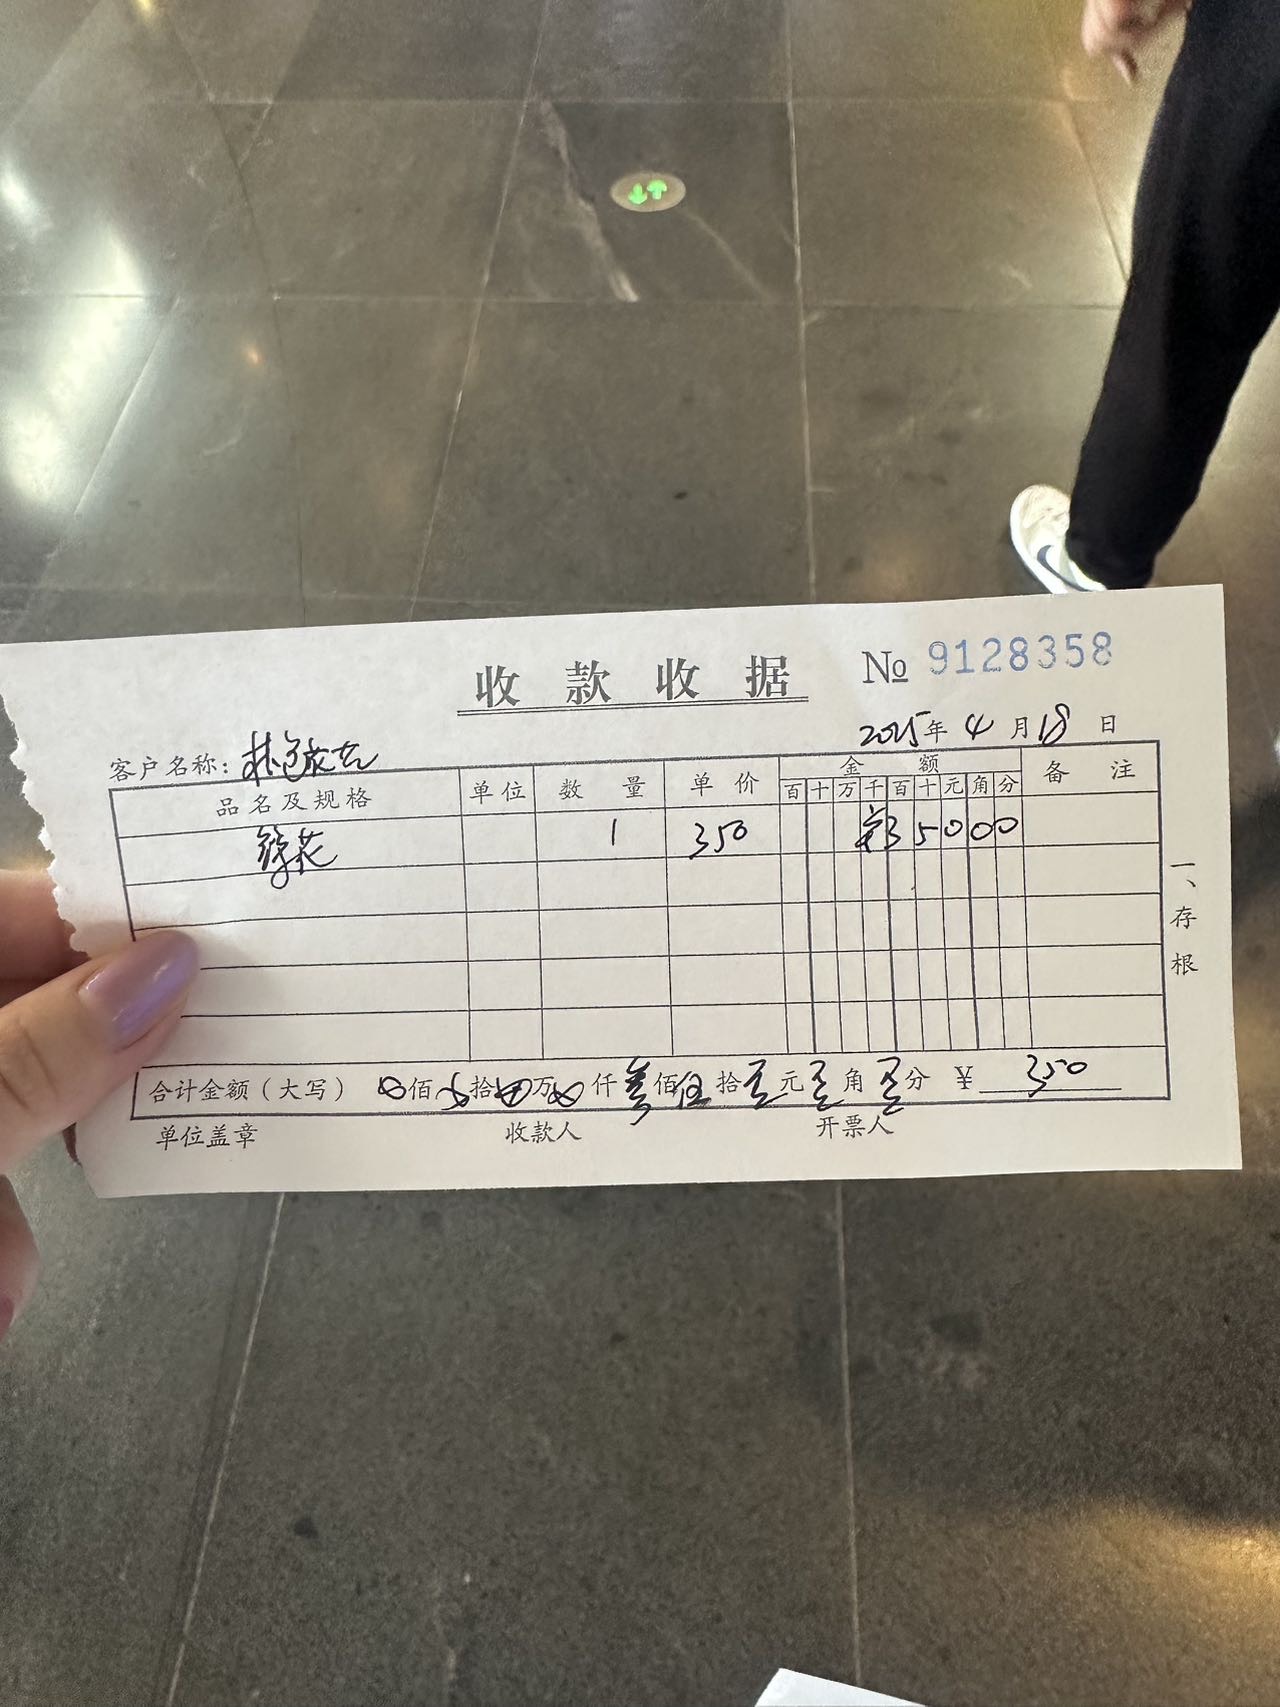 收款收据 № 9128358
2025年 4月18日
客户名称：
品名及规格 单位 数量 单价 金额 备注
百 十 万 千 百 十 元 角 分
1 350 ¥35000
一、存根
合计金额（大写） 0佰0拾0万0仟叁佰伍拾零元零角零分 ¥ 350
单位盖章 收款人 开票人